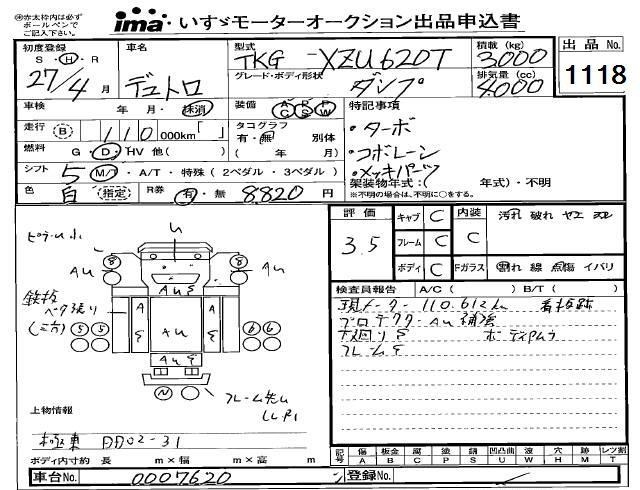 ※赤太枠内は必ずボールペンでご記入下さい。
ima いすゞモーターオークション出品申込書
初度登録 S・H・R 27/4 月
車名 デュトロ
型式 TKG-XZU620T
グレード・ボディ形状 ダンプ
積載(kg) 3000
排気量(cc) 4000
出品No.
1118
車検 年・月・抹消
装備 AC PS PW
特記事項
走行 B 110 000km「 」
タコグラフ 有・無 別体
・ターボ
燃料 G・D・HV 他( )
( 年 月)
・コボレーン
シフト 5 M/T・A/T・特殊(2ペダル・3ペダル)
・メッキパーツ
色 白 指定 R券 有・無 8820 円
架装物年式:( 年式)・不明
※不明の場合は、不明に○をする。
評価 3.5
キャブ C 内装 C 汚れ 破れ ヤエ
フレーム C
ボディ C Fガラス 割れ 線 点傷 イバリ
検査員報告 A/C( ) B/T( )
現メーター 110.612km 看板跡
プロテクター AU補強
下回りS ボディ
フレームS
AU AU
AUS
AS AU AS
鉄板 ベタ張り
(三方)
5 5 6 6
8 8
N
フレーム先
上物情報
極東 DD02-31
ボディ内寸約 長 m×幅 m×高 m
記号 傷A 板金B 腐C 塗P 錆S 凹凸曲U 波W 穴H 跡M レンズ割T
車台No. 0007620
登録No.